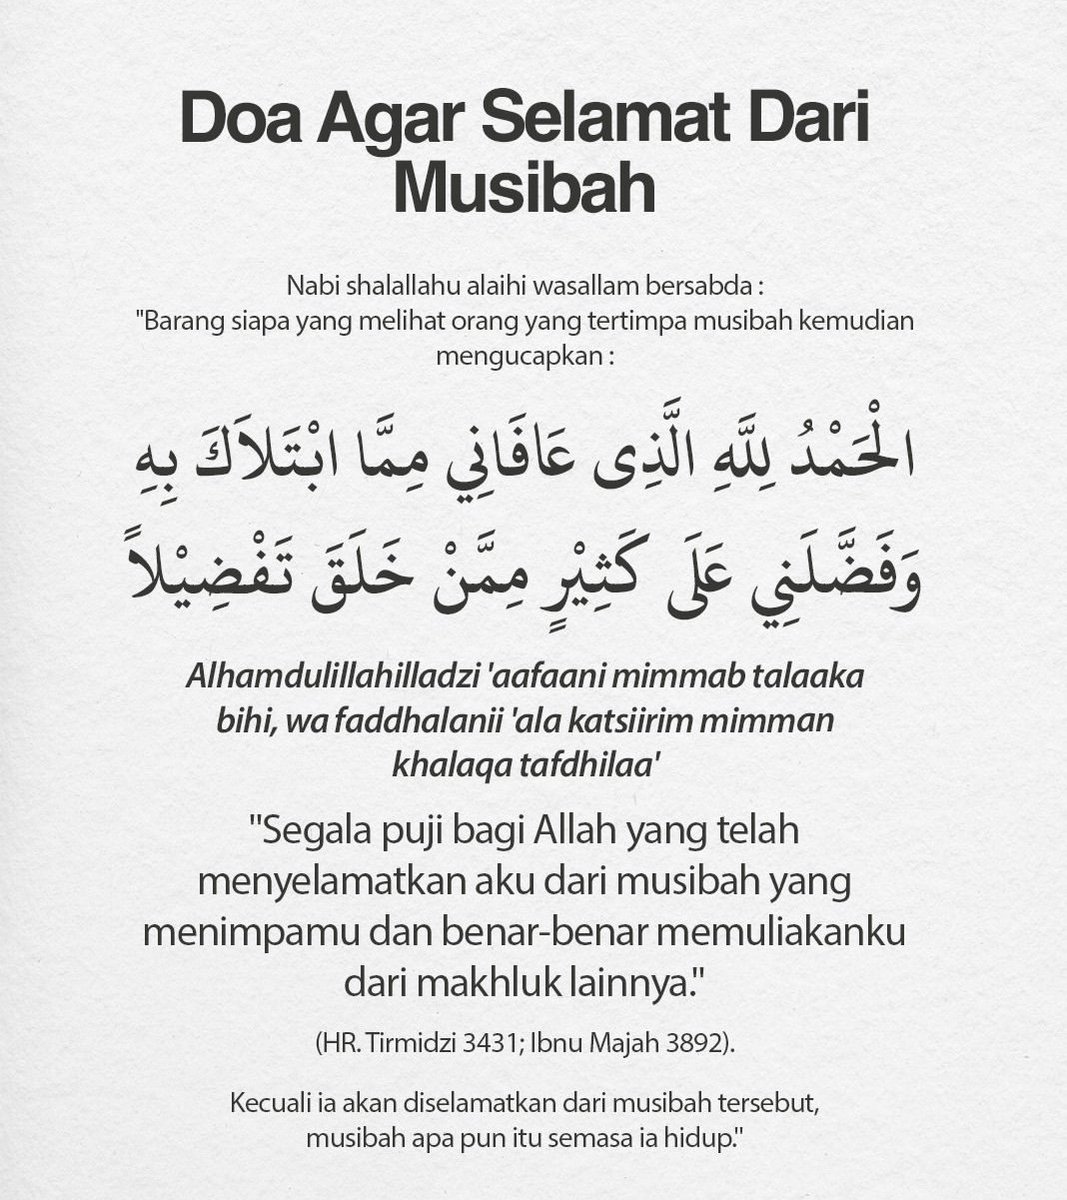 Doa Agar Selamat Dari
Musibah
Nabi shalallahu alaihi wasallam bersabda :
"Barang siapa yang melihat orang yang tertimpa musibah kemudian
mengucapkan :
الْحَمْدُ لِلَّهِ الَّذِى عَافَانِي مِمَّا ابْتَلاَكَ بِهِ
وَفَضَّلَنِي عَلَى كَثِيْرٍ مِمَّنْ خَلَقَ تَفْضِيْلاً
Alhamdulillahilladzi 'aafaani mimmab talaaka
bihi, wa faddhalanii 'ala katsiirim mimman
khalaqa tafdhilaa'
"Segala puji bagi Allah yang telah
menyelamatkan aku dari musibah yang
menimpamu dan benar-benar memuliakanku
dari makhluk lainnya."
(HR. Tirmidzi 3431; Ibnu Majah 3892).
Kecuali ia akan diselamatkan dari musibah tersebut,
musibah apa pun itu semasa ia hidup."